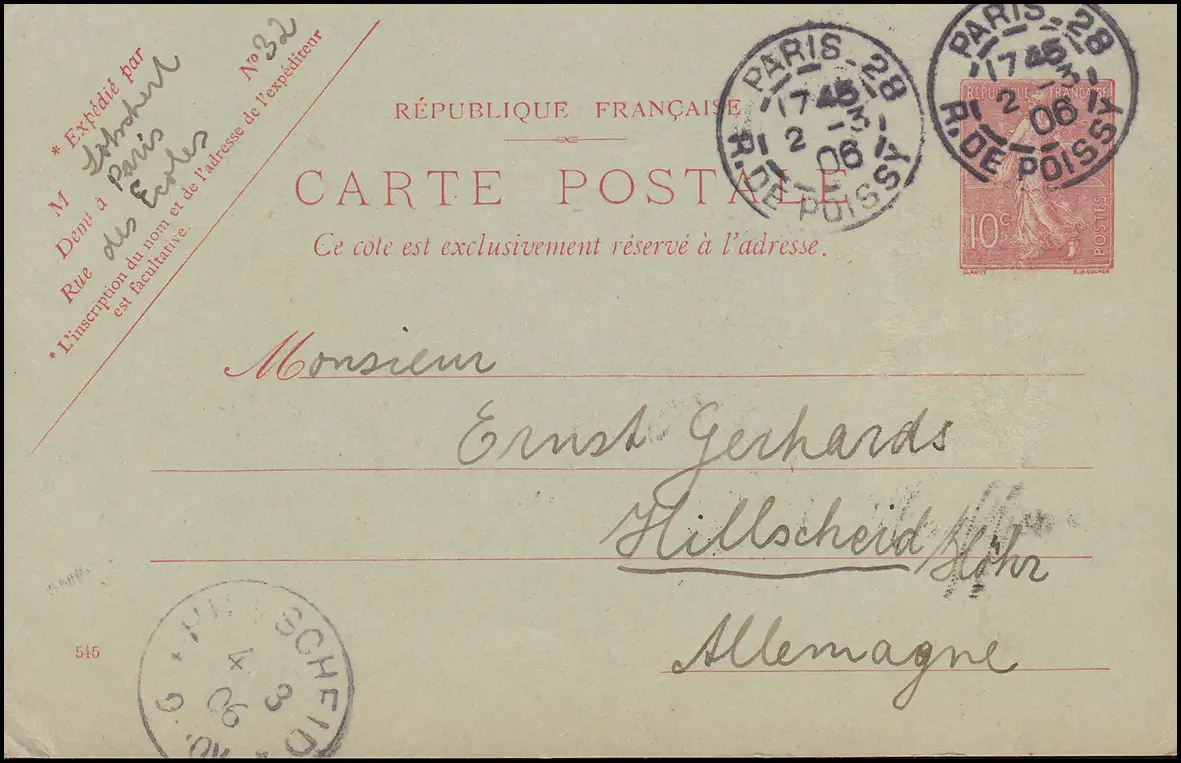 * Expédié par
M Lobscherl
Demt à Paris
Rue des Ecoles
No 32
* L'inscription du nom et de l'adresse de l'expéditeur
est facultative.
RÉPUBLIQUE FRANÇAISE
CARTE POSTALE
Ce côté est exclusivement réservé à l'adresse.
PARIS-28
1745
2 -3
06
R. DE POISSY
PARIS-28
1745
2 -3
06
R. DE POISSY
RÉPUBLIQUE FRANÇAISE
10c
POSTES
O. ROTY
E. MOUCHON
Monsieur
Ernst Gerhards
Hillscheid/Höhr
Allemagne
545
HILLSCHEID
4
3
06